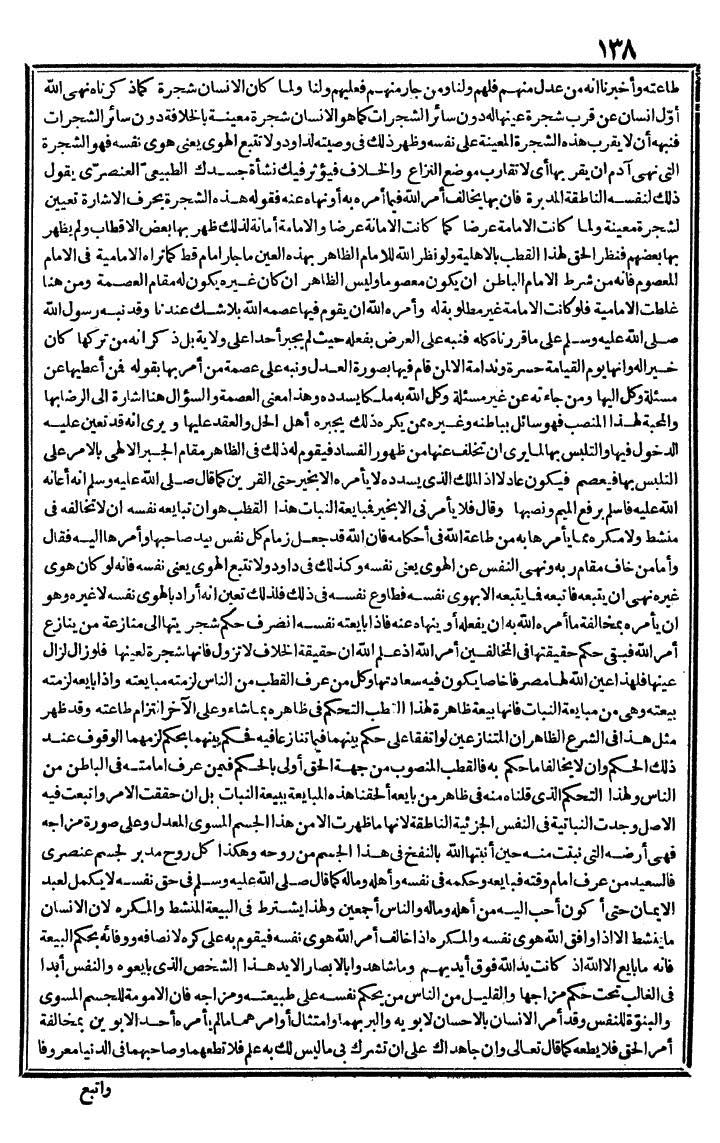 ١٣٨
طاعته وأخبرنا انه من عدل منهم فلهم ولنا ومن جار منهم فعليهم ولنا ولما كان الانسان شجرة كماذكرناه نهى الله
أوّل انسان عن قرب شجرة عينها له دون سائر الشجرات كما هو الانسان شجرة معينة بالخلافة دون سائر الشجرات
فنبهه أن لا يقرب هذه الشجرة المعينة على نفسه وظهر ذلك فى وصيته لداود ولا تتبع الهوى يعنى هوى نفسه فهو الشجرة
التى نهى آدم ان يقربها أى لا تقارب موضع النزاع والخلاف فيؤثر فيك نشأة جسدك الطبيعىّ العنصرىّ يقول
ذلك لنفسه الناطقة المدبرة فان بها يخالف أمر الله فيما أمره به أونهاه عنه فقوله هذه الشجرة بحرف الاشارة تعيين
لشجرة معينة ولما كانت الامامة عرضا كما كانت الامانة عرضا والامامة أمانة لذلك ظهر بها بعض الاقطاب ولم يظهر
بها بعضهم فنظر الحق لهذا القطب بالاهلية ولو نظر الله للامام الظاهر بهذه العين ما جار امام قط كماتراه الامامية فى الامام
المعصوم فانه من شرط الامام الباطن ان يكون معصوما وليس الظاهر ان كان غيره يكون له مقام العصمة ومن هنا
غلطت الامامية فلو كانت الامامة غير مطلوبة له وأمره الله ان يقوم فيها عصمه الله بلا شك عندنا وقد نبه رسول الله
صلى الله عليه وسلم على ما قررناه كله فنبه على العرض بفعله حيث لم يجبر أحدا على ولاية بل ذكر انه من تركها كان
خيرا له وانها يوم القيامة حسرة وندامة الا لمن قام فيها بصورة العدل ونبه على عصمة من أمر بها بقوله فمن أعطيها عن
مسئلة وكل اليها ومن جاءته عن غير مسئلة وكل الله به ملكا يسدده وهذا معنى العصمة والسؤال هنا اشارة الى الرضا بها
والمحبة لهذا المنصب فهو سائل بباطنه وغيره ممن يكره ذلك يجبره أهل الحل والعقد عليها ويرى انه قد تعين عليه
الدخول فيها والتلبس بها لما يرى ان تخلف عنها من ظهور الفساد فيقوم له ذلك فى الظاهر مقام الجبر الالهى بالامر على
التلبس بها فيعصم فيكون عادلا اذ الملك الذى يسدده لا يأمره الا بخير حتى القرين كماقال صلى الله عليه وسلم انه أعانه
الله عليه فاسلم برفع الميم ونصبها وقال فلا يأمرنى الا بخير فمبايعة النبات هذا القطب هو ان تبايعه نفسه ان لا تخالفه فى
منشط ولا مكره مما يأمرها به من طاعة الله فى أحكامه فان الله قد جعل زمام كل نفس بيد صاحبها وأمرها اليه فقال
وأما من خاف مقام ربه ونهى النفس عن الهوى يعنى نفسه وكذلك فى داود ولا تتبع الهوى يعنى نفسه فانه لو كان هوى
غيره نهى ان يتبعه فاتبعه فما يتبعه الا بهوى نفسه فطاوع نفسه فى ذلك فلذلك تعين انه أراد بالهوى نفسه لا غيره وهو
ان يأمره بمخالفة ما أمره الله به ان يفعله أو ينهاه عنه فاذا بايعته نفسه انصرف حكم شجريتها الى منازعة من ينازع
أمر الله فبقى حكم حقيقتها فى المخالفين أمر الله اذ علم الله ان حقيقة الخلاف لا تزول فانها شجرة لعينها فلو زال لزال
عينها فلهذا عين الله لها مصرفا خاصا يكون فيه سعادتها وكل من عرف القطب من الناس لزمته مبايعته واذا بايعه لزمته
بيعته وهى من مبايعة النبات فانها بيعة ظاهرة لهذا القطب التحكم فى ظاهره بماشاء وعلى الآخر التزام طاعته وقد ظهر
مثل هذا فى الشرع الظاهر ان المتنازعين لو اتفقا على حكم بينهما فيما تنازعا فيه فحكم بينهما بحكم لزمهما الوقوف عند
ذلك الحكم وان لا يخالفا ما حكم به فالقطب المنصوب من جهة الحق أولى بالحكم فيمن عرف امامته فى الباطن من
الناس ولهذا التحكم الذى قلناه منه فى ظاهر من بايعه ألحقنا هذه المبايعة ببيعة النبات بل ان حققت الامر واتبعت فيه
الاصل وجدت النباتية فى النفس الجزئية الناطقة لانها ما ظهرت الا من هذا الجسم المسوى المعدل وعلى صورة مزاجه
فهى أرضه التى نبتت منه حين أنبتها الله بالنفخ فى هذا الجسم من روحه وهكذا كل روح مدبر لجسم عنصرى
فالسعيد من عرف امام وقته فبايعه وحكمه فى نفسه وأهله وماله كماقال صلى الله عليه وسلم فى حق نفسه لا يكمل لعبد
الايمان حتى أكون أحب اليه من أهله وماله والناس أجمعين ولهذا يشترط فى البيعة المنشط والمكره لان الانسان
ما ينشط الا اذا وافق الله هوى نفسه والمكره اذا خالف أمر الله هوى نفسه فيقوم به على كره لانصافه ووفائه بحكم البيعة
فانه ما بايع الا الله اذ كانت يد الله فوق أيديهم وما شاهدوا بالابصار الا يد هذا الشخص الذى بايعوه والنفس أبدا
فى الغالب تحت حكم مزاجها والقليل من الناس من يحكم نفسه على طبيعته ومزاجه فان الامومة للجسم المسوى
والبنوّة للنفس وقد أمر الانسان بالاحسان لابويه والبر بهما وامتثال أوامرهما ما لم يأمره أحد الابوين بمخالفة
أمر الحق فلا يطعه كماقال تعالى وان جاهداك على ان تشرك بى ما ليس لك به علم فلا تطعهما وصاحبهما فى الدنيا معروفا
واتبع